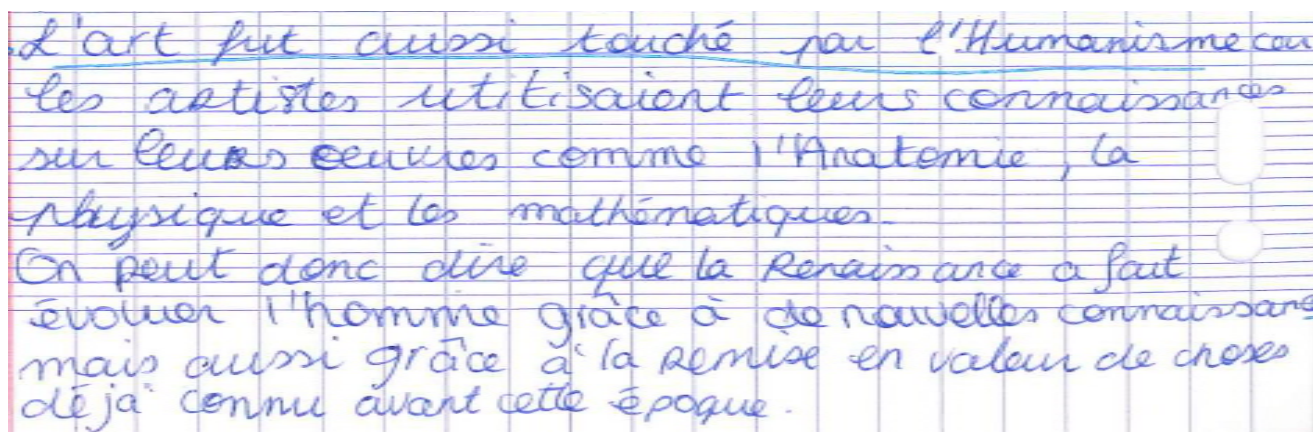 L'art fut aussi touché par l'Humanisme car
les artistes utilisaient leurs connaissances
sur leurs oeuvres comme l'Anatomie, la
physique et les mathématiques.
On peut donc dire que la Renaissance a fait
évoluer l'homme grâce à de nouvelles connaissances
mais aussi grâce à la remise en valeur de choses
déjà connu avant cette époque.